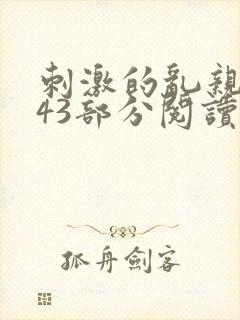 刺激的亂親
43部分閱讀
孤舟劍客